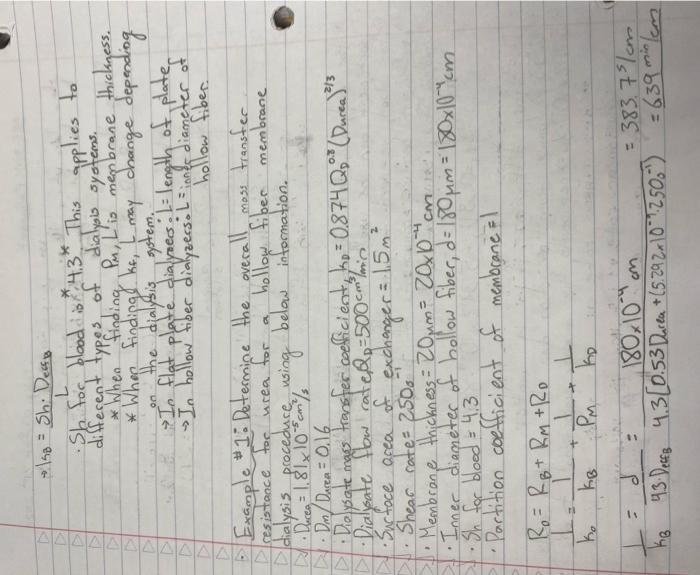 → kB = Sh · DeffB
L
· Sh for blood is *4.3* This applies to
different types of dialysis systems.
* When finding PM, L is membrane thickness.
* When finding kB, L may change depending
on the dialysis system.
→ In flat plate dialyzers: L = length of plate
→ In hollow fiber dialyzers: L = inner diameter of
hollow fiber.
· Example #1: Determine the overall mass transfer
resistance for urea for a hollow fiber membrane
dialysis procedure using below information.
· Durea = 1.81x10⁻⁵ cm²/s
· Dm/Durea = 0.16
· Dialysate mass transfer coefficient, kD = 0.874 QD^0.8 (Durea)^2/3
· Dialysate flow rate, QD = 500 cm³/min
· Surface area of exchanger = 1.5 m²
· Shear rate = 250 s⁻¹
· Membrane thickness = 20 µm = 20x10⁻⁴ cm
· Inner diameter of hollow fiber, d = 180 µm = 180x10⁻⁴ cm
· Sh for blood = 4.3
· Partition coefficient of membrane = 1
RO = RB + RM + RD
1/ko = 1/kB + 1/PM + 1/kD
1/kB = d/4.3·DeffB = 180x10⁻⁴ cm/4.3[0.53Durea + (5.292x10⁻⁹·250s⁻¹)] = 383.7 s/cm
= 6.39 min/cm